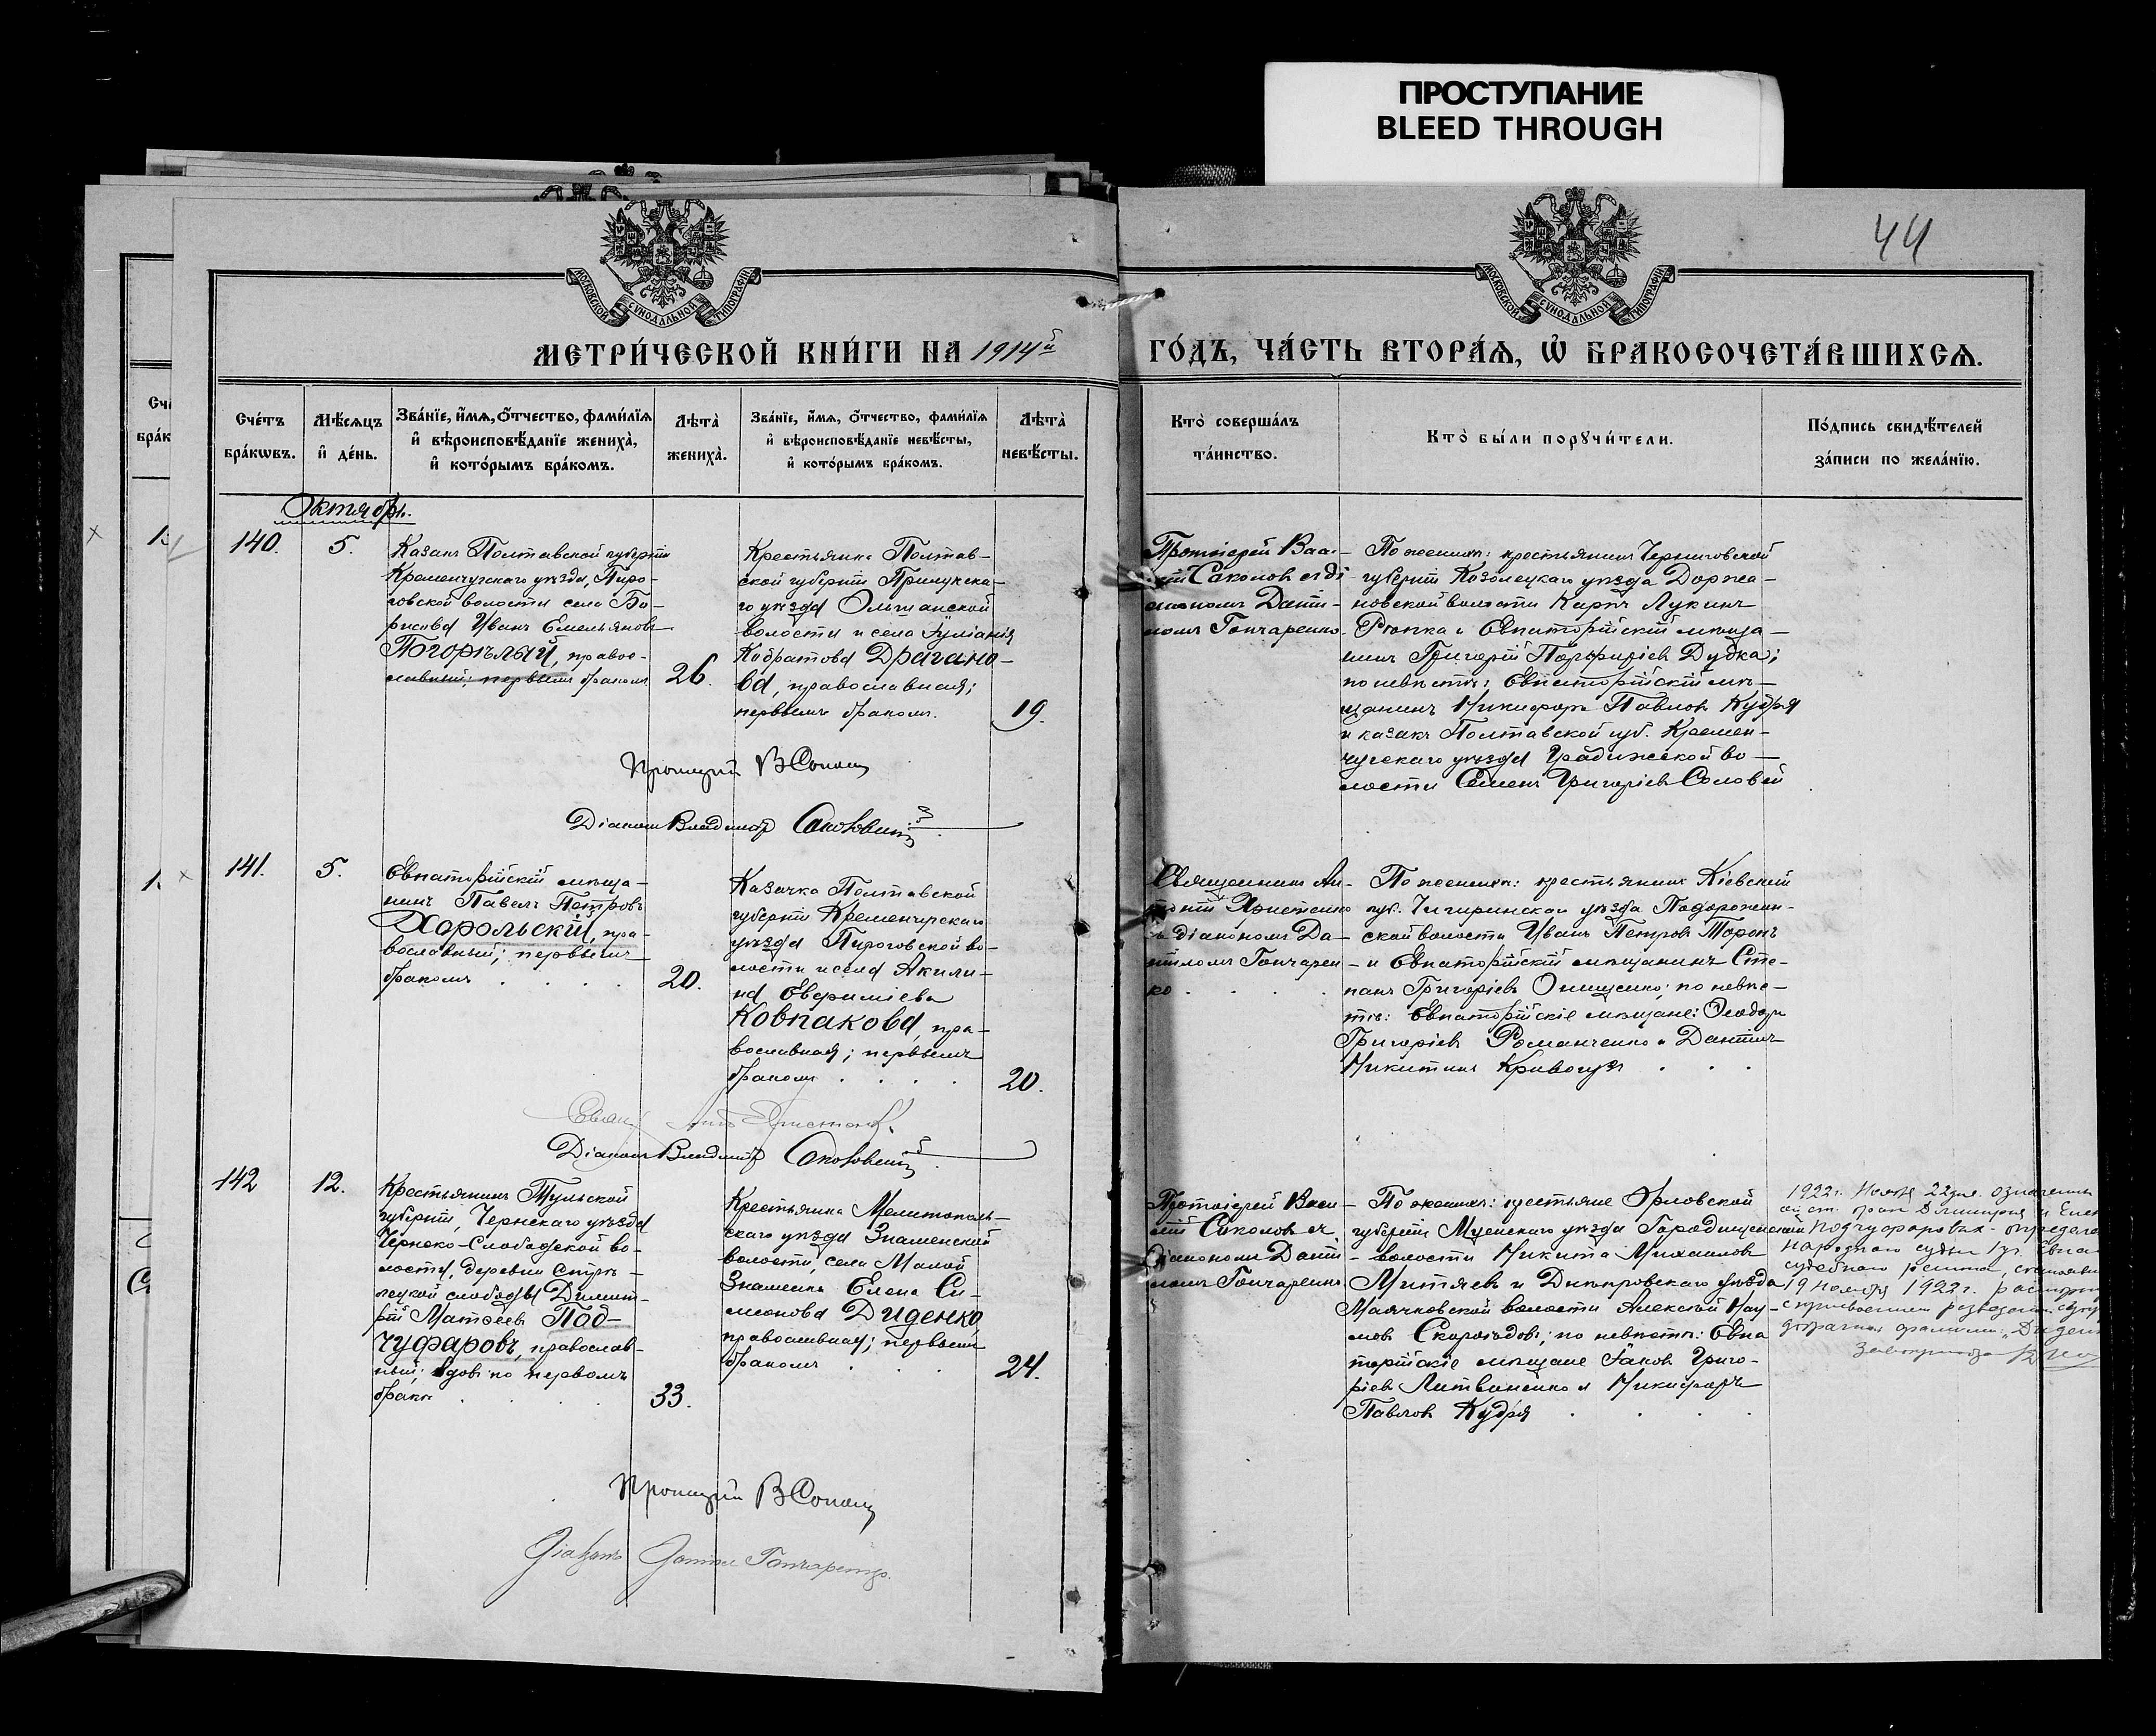 ПРОСТУПАНИЕ
BLEED THROUGH
44
МОСКОВСКОЙ СУНОДАЛЬНОЙ ТИПОГРАФІИ
МОСКОВСКОЙ СУНОДАЛЬНОЙ ТИПОГРАФІИ
МЕТРИ́ЧЕСКОЙ КНИ́ГИ НА 1914й
ГО́ДЪ, ЧА́СТЬ ВТОРА́Ѧ, Ѡ҆ БРАКОСОЧЕТА́ВШИХСѦ.
Сче́тъ
бра́кѡвъ.
Мѣ́сѧцъ
и҆ де́нь.
Зва́нїе, и҆́мѧ, ѻ҆́тчество, фами́лїѧ
и҆ вѣроисповѣ́данїе жениха̀,
и҆ кото́рымъ бра́комъ.
Лѣта̀
жениха̀.
Зва́нїе, и҆́мѧ, ѻ҆́тчество, фами́лїѧ
и҆ вѣроисповѣ́данїе невѣ́сты,
и҆ кото́рымъ бра́комъ.
Лѣта̀
невѣ́сты.
Кто̀ соверша́лъ
та́инство.
Кто̀ бы́ли порꙋчи́тели.
По́дпись свидѣ́телей
за́писи по жела́нїю.
Октябрь.
140.
5.
Казакъ Полтавской губерніи
Кременчугскаго уѣзда, Пиро-
говской волости села Бо-
рисова Иванъ Емельяновъ
Погорѣлый, правос-
лавный; первымъ бракомъ
26.
Крестьянка Полтав-
ской губерніи Прилукска-
го уѣзда Ольшанской
волости и села Іуліанія
Кодратова Драгано-
ва, православная;
первымъ бракомъ.
19.
Протоіерей Васи-
лій Соколовъ съ ді-
акономъ Дані-
иломъ Гончаренко.
По женихѣ: крестьянинъ Черниговской
губерніи Козелецкаго уѣзда Держа-
новской волости Карпъ Лукинъ
Рюпка и Евпаторійскій мѣща-
нинъ Григорій Порфиріевъ Дудка;
по невѣстѣ: Евпаторійскій мѣ-
щанинъ Никифоръ Павловъ Кудря
и казакъ Полтавской губ. Кремен-
чугскаго уѣзда Градижской во-
лости Семенъ Григоріевъ Соловей
Протоіерей В Соколовъ
Діаконъ Владиміръ
141.
5.
Евпаторійскій мѣща-
нинъ Павелъ Петровъ
Хорольскій, пра-
вославный; первымъ
бракомъ
20.
Казачка Полтавской
губерніи Кременчугскаго
уѣзда Пироговской во-
лости и села Акили-
на Евфиміева
Ковпакова, пра-
вославная; первымъ
бракомъ
20.
Священникъ Ан-
тоній Христенко
съ діакономъ Да-
ніиломъ Гончарен-
ко
По женихѣ: крестьянинъ Кіевской
губ. Чигиринскаго уѣзда Подорожан-
ской волости Иванъ Петровъ Торопъ
и Евпаторійскій мѣщанинъ Сте-
панъ Григоріевъ Онищенко; по невѣс-
тѣ: Евпаторійскіе мѣщане: Ѳеодоръ
Григоріевъ Романченко и Даніилъ
Никитинъ Кривогузъ
Діаконъ Владиміръ
142
12.
Крестьянинъ Тульской
губерніи, Чернскаго уѣзда
Чернско-Слободской во-
лости, деревни Стрѣ-
лецкой слободы Димит-
рій Матѳеевъ Под-
чуфаровъ, православ-
ный; вдовъ по первомъ
бракѣ
33.
Крестьянка Мелитополь-
скаго уѣзда Знаменской
волости, села Малой
Знаменки Елена Си-
меонова Диденко,
православная; первымъ
бракомъ
24.
Протоіерей Васи-
лій Соколовъ съ
діакономъ Дані-
иломъ Гончаренко
По женихѣ: крестьяне Орловской
губерніи Мценскаго уѣзда Городищенской
волости Никита Михаиловъ
Митяевъ и Днѣпровскаго уѣзда
Маячковской волости Алексѣй Нау-
мовъ Скороѣдовъ; по невѣстѣ: Евпа-
торійскіе мѣщане Іаковъ Григо-
ріевъ Литвиненко и Никифоръ
Павловъ Кудря
1922г. Ноября 22 дня.
брак Димитрия и Елены
Подчуфаровых определ
Народного судьи 1 уч. Евпа
судебного
19 ноября 1922 г.
с присвоением
добрачной фамилии „Диден
Протоіерей В Соколовъ
Діаконъ Даніилъ Гончаренко.